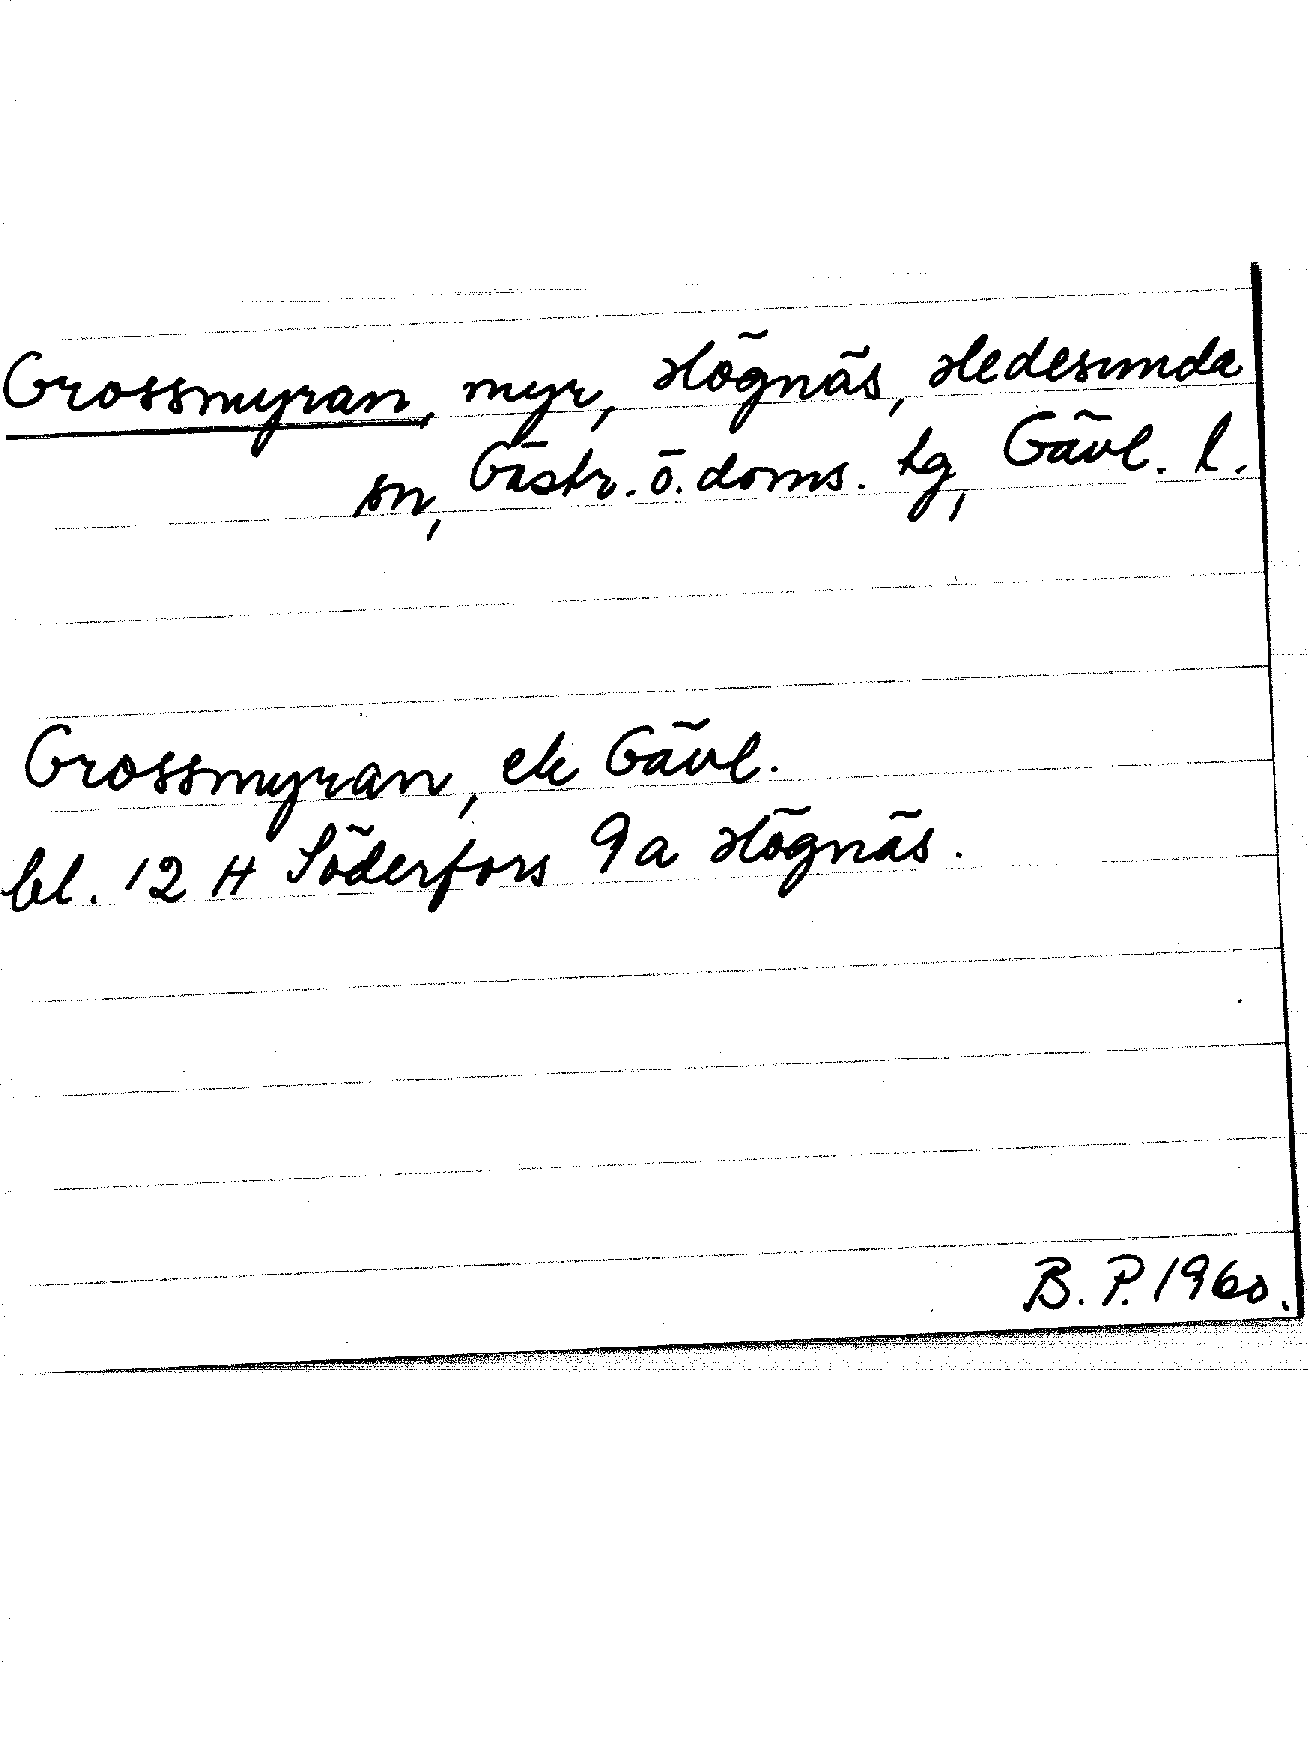 Grossmyran, myr, Högnäs, Hedesunda
sn, Gästr. ö. doms. tg, Gävl. l.
Grossmyran, ek Gävl.
bl. 12 H Söderfors 9a Högnäs.
B. P. 1960.